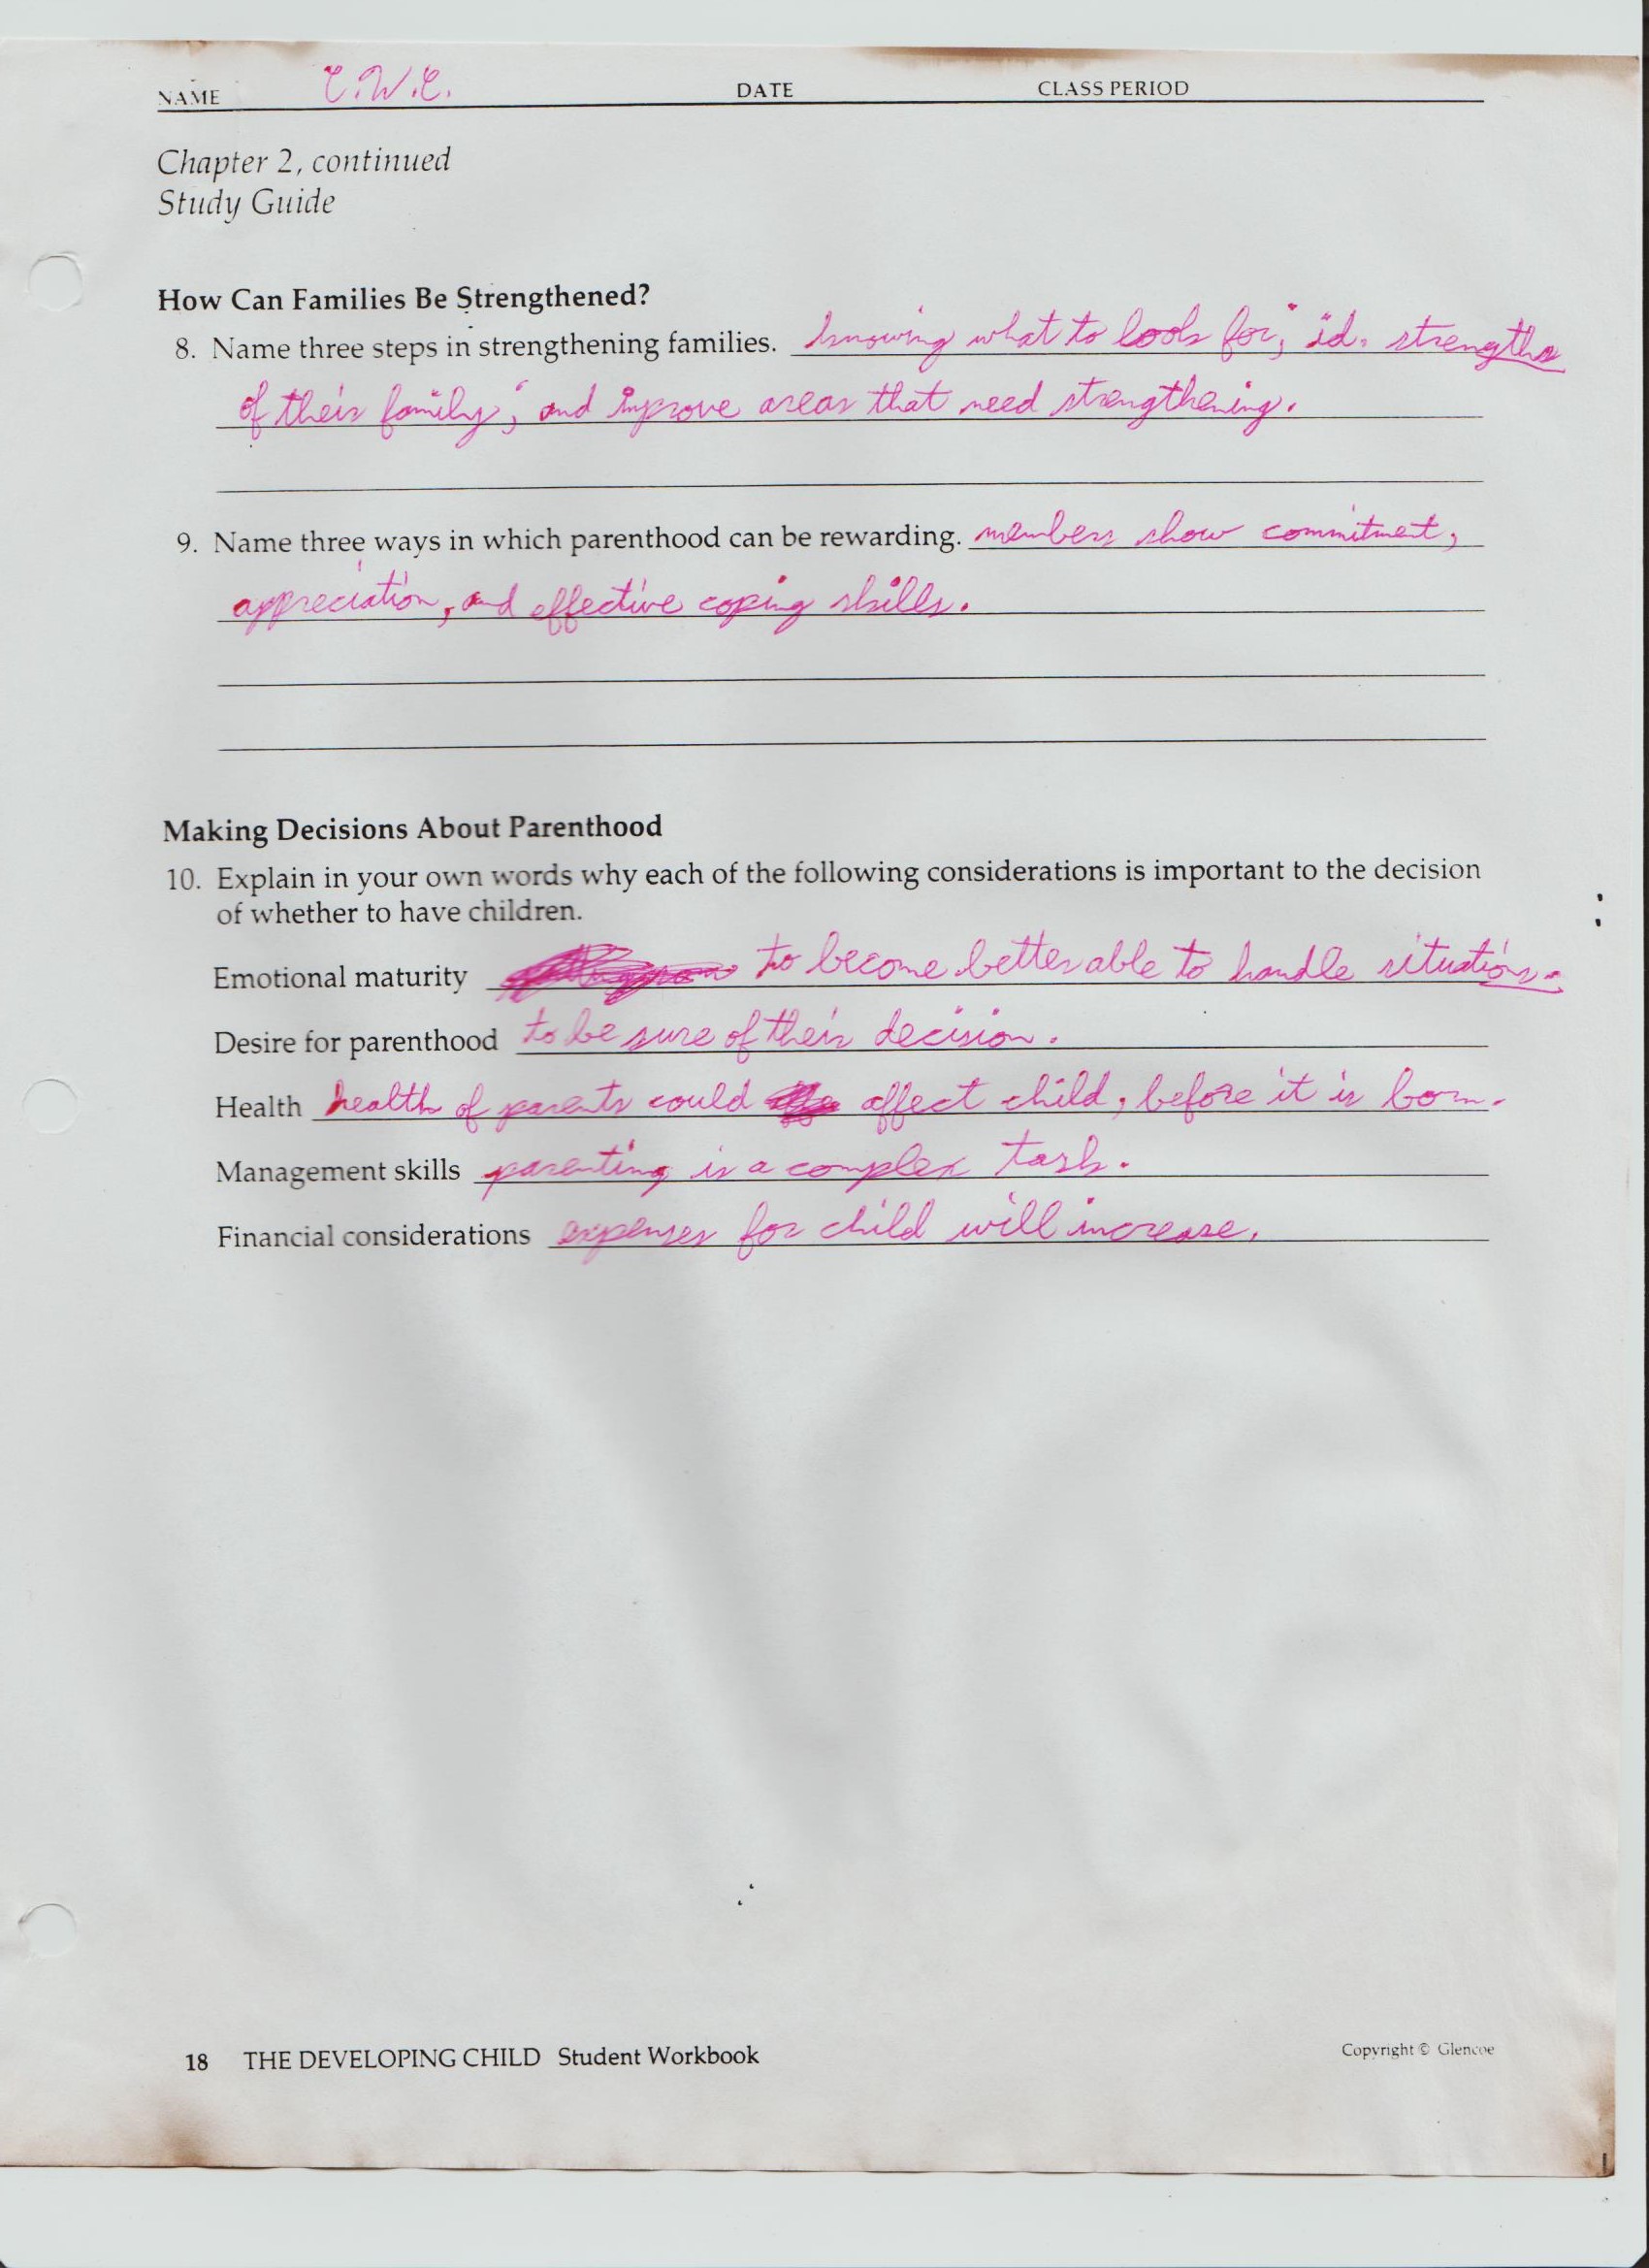 NAME C.W.C. DATE CLASS PERIOD
Chapter 2, continued
Study Guide
How Can Families Be Strengthened?
8. Name three steps in strengthening families. knowing what to look for; id. strengths
of their family; and improve areas that need strengthening.
9. Name three ways in which parenthood can be rewarding. members show commitment,
appreciation, and effective coping skills.
Making Decisions About Parenthood
10. Explain in your own words why each of the following considerations is important to the decision
of whether to have children.
Emotional maturity to become better able to handle situations.
Desire for parenthood to be sure of their decision.
Health health of parents could affect child, before it is born.
Management skills parenting is a complex task.
Financial considerations expenses for child will increase.
18 THE DEVELOPING CHILD Student Workbook
Copyright © Glencoe